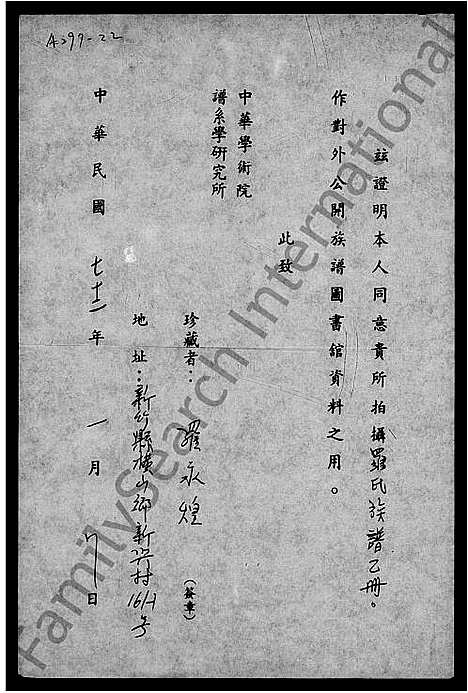 A399-22
茲證明本人同意貴所拍攝羅氏族譜乙冊。
作對外公開族譜圖書館資料之用。
此致
中華學術院
譜系學研究所
珍藏者：羅永煌（簽章）
地址：新竹縣橫山鄉新興村號
中華民國七十二年一月日
FamilySearch International